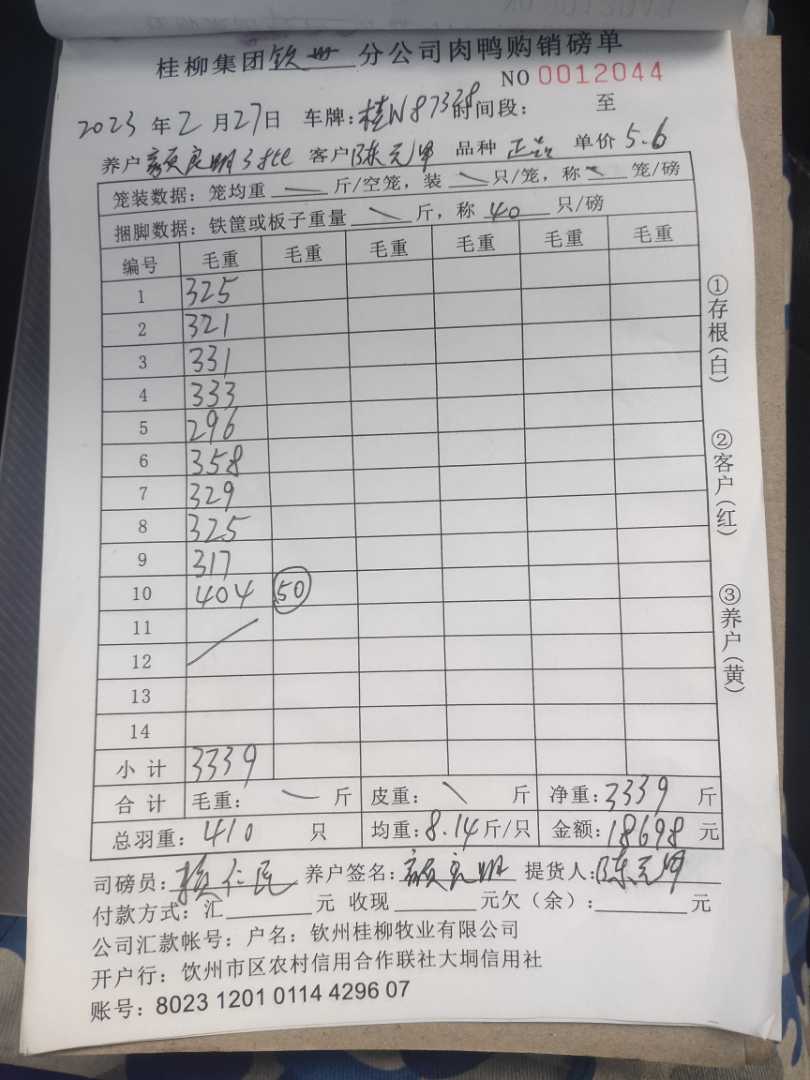 桂柳集团钦州分公司肉鸭购销磅单
NO 0012044
2023年2月27日 车牌:桂N87338 时间段: 至
养户 良明 客户 陈元甲 品种 正品 单价 5.6
笼装数据:笼均重 斤/空笼,装 只/笼,称 笼/磅
捆脚数据:铁筐或板子重量 斤,称 40 只/磅
编号 毛重 毛重 毛重 毛重 毛重 毛重
1 325
2 321
3 331
4 333
5 296
6 358
7 329
8 325
9 317
10 404 50
11
12
13
14
小计 3339
合计 毛重: 斤 皮重: 斤 净重:3339 斤
总羽重:410 只 均重:8.14斤/只 金额:18698元
司磅员: 仁民 养户签名: 良明 提货人:陈元甲
付款方式:汇 元 收现 元欠(余): 元
公司汇款帐号:户名:钦州桂柳牧业有限公司
开户行:饮州市区农村信用合作联社大垌信用社
账号:8023 1201 0114 4296 07
①存根(白)
②客户(红)
③养户(黄)